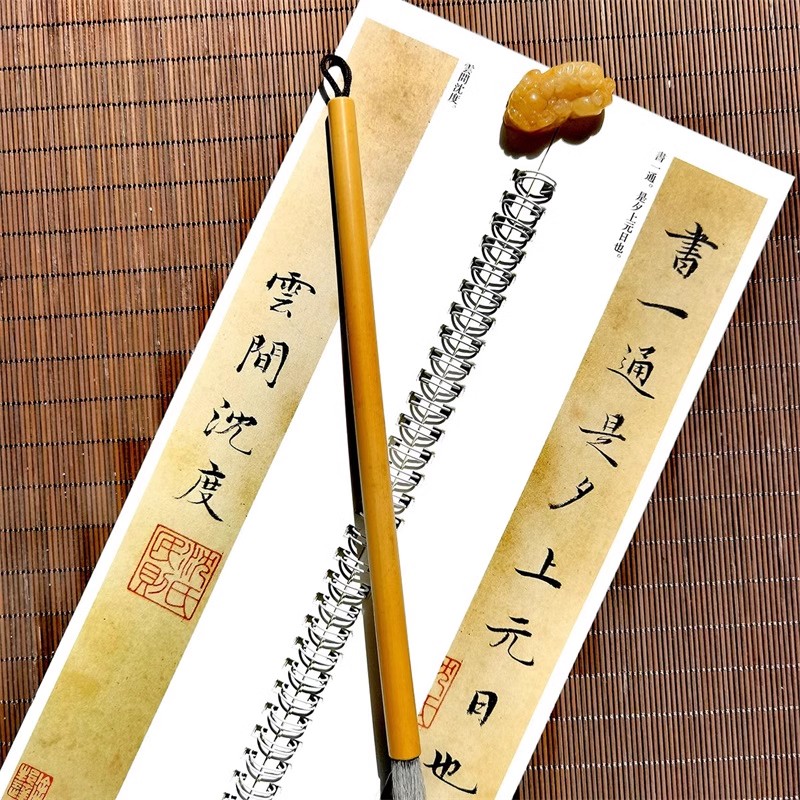 書一通。是夕上元日也。
書一通是夕上元日也
雲間沈度。
雲間沈度
沈氏民則